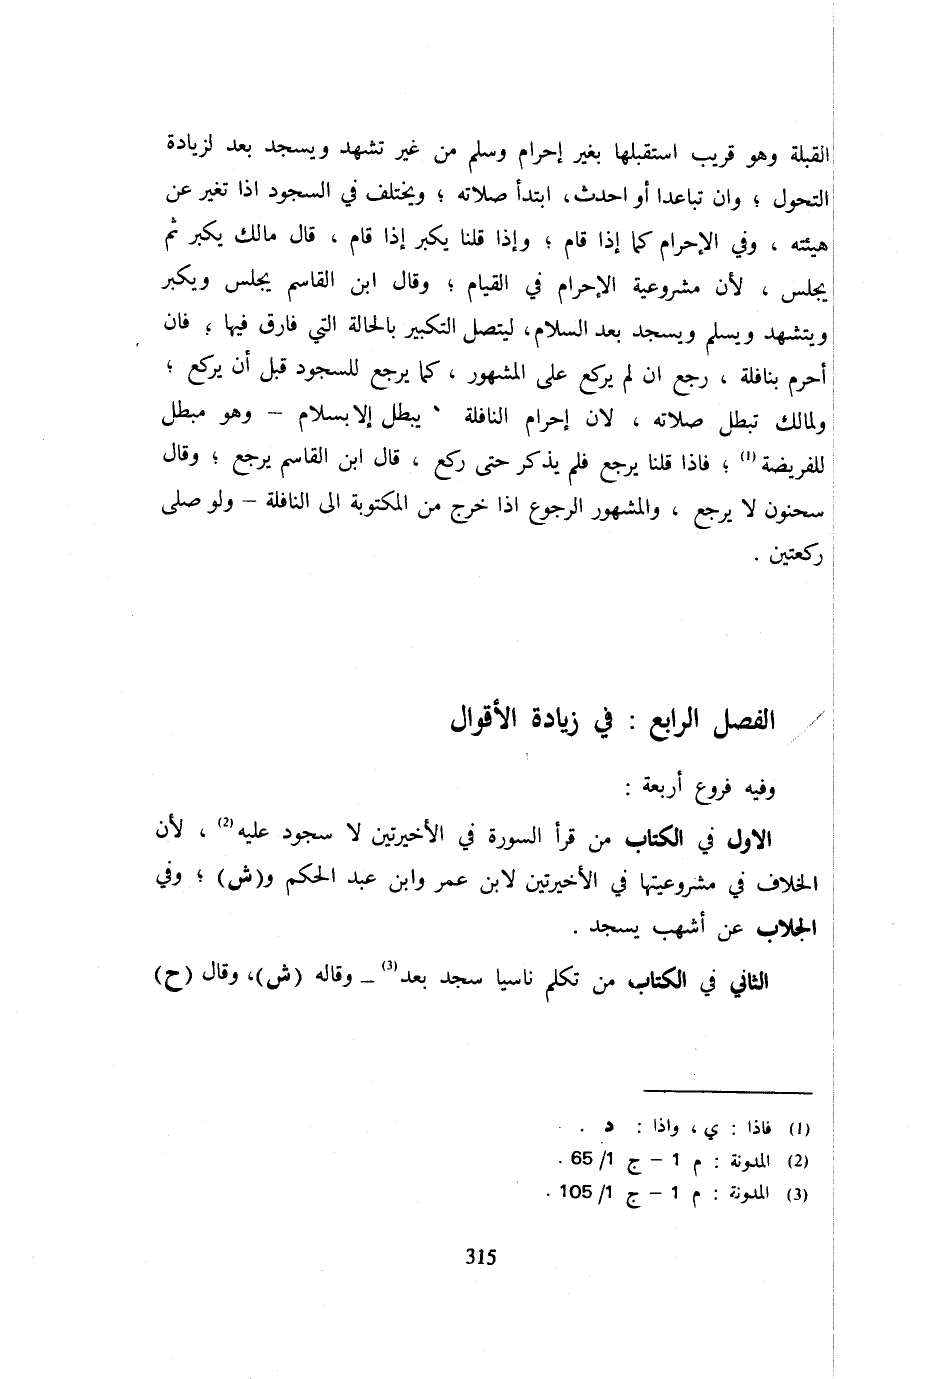 القبلة وهو قريب استقبلها بغير إحرام وسلم من غير تشهد ويسجد بعد لزيادة
التحول ؛ وان تباعدا أو احدث، ابتدأ صلاته ؛ ويختلف في السجود اذا تغير عن
هيئته ، وفي الإحرام كما إذا قام ؛ وإذا قلنا يكبر إذا قام ، قال مالك يكبر ثم
يجلس ، لأن مشروعية الإحرام في القيام ؛ وقال ابن القاسم يجلس ويكبر
ويتشهد ويسلم ويسجد بعد السلام، ليتصل التكبير بالحالة التي فارق فيها ؛ فان
أحرم بنافلة ، رجع ان لم يركع على المشهور ، كما يرجع للسجود قبل أن يركع ؛
ولمالك تبطل صلاته ، لان إحرام النافلة يبطل إلا بسلام – وهو مبطل
للفريضة (1) ؛ فاذا قلنا يرجع فلم يذكر حتى ركع ، قال ابن القاسم يرجع ؛ وقال
سحنون لا يرجع ، والمشهور الرجوع اذا خرج من المكتوبة الى النافلة – ولو صلى
ركعتين .
الفصل الرابع : في زيادة الأقوال
وفيه فروع أربعة :
الاول في الكتاب من قرأ السورة في الأخيرتين لا سجود عليه (2) ، لأن
الخلاف في مشروعيتها في الأخيرتين لابن عمر وابن عبد الحكم و(ش) ؛ وفي
الجلاب عن أشهب يسجد .
الثاني في الكتاب من تكلم ناسيا سجد بعد (3) – وقاله (ش)، وقال (ح)
(1) فاذا : ي ، واذا : د .
(2) المدونة : م 1 – ج 1/ 65 .
(3) المدونة : م 1 – ج 1/ 105 .
315